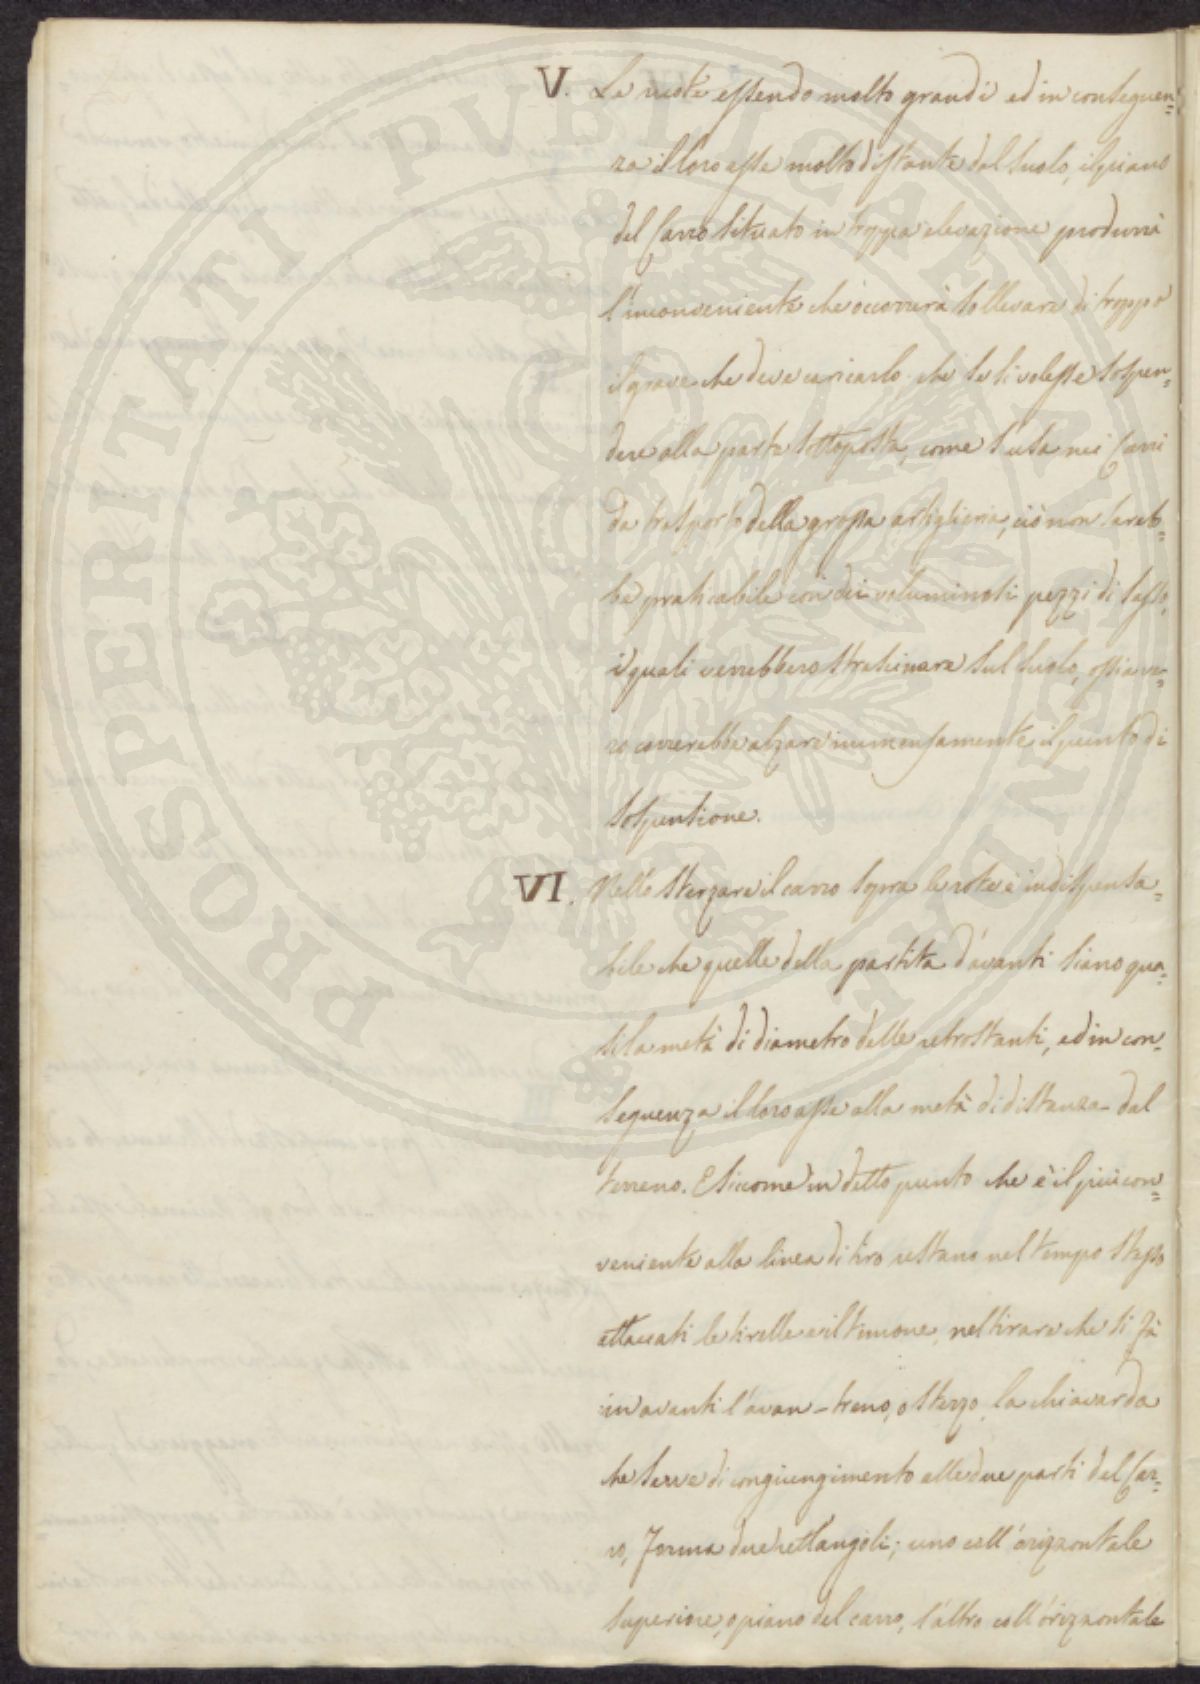 V. Le ruote essendo molto grandi ed in conseguen=
za il loro asse molto distante dal suolo, il piano
del Carro situato in troppa elevazione produrrà
l'inconveniente che occorrerà sollevare di troppo
il grave che deve caricarlo. che se si volesse sospen=
dere alla parte sottoposta, come s'usa nei Carri
da trasporto della grossa artiglieria, ciò non sareb=
be praticabile con dei voluminosi pezzi di sasso,
i quali verrebbero strascinare sul suolo, ossia ve=
ro converebbe alzare immensamente il punto di
sospensione.
VI. Nello sterzare il carro sopra le rote è indispensa=
bile che quelle della partita d'avanti siano qua=
si la metà di diametro delle retrostanti, ed in con=
seguenza il loro asse alla metà di distanza dal
terreno. E siccome in detto punto che è il più con=
veniente alla linea di tiro restano nel tempo stesso
attaccati le tirelle e il timone, nel tirare che si fà
in avanti l'avan-treno, o sterzo, la chiavarda
che serve di congiungimento alle due parti del Car=
ro, forma due rettangoli; uno coll'orizzontale
superiore, o piano del carro, l'altro coll'orizzontale
PROSPERITATI PUBLICAE AUGENDAE
III